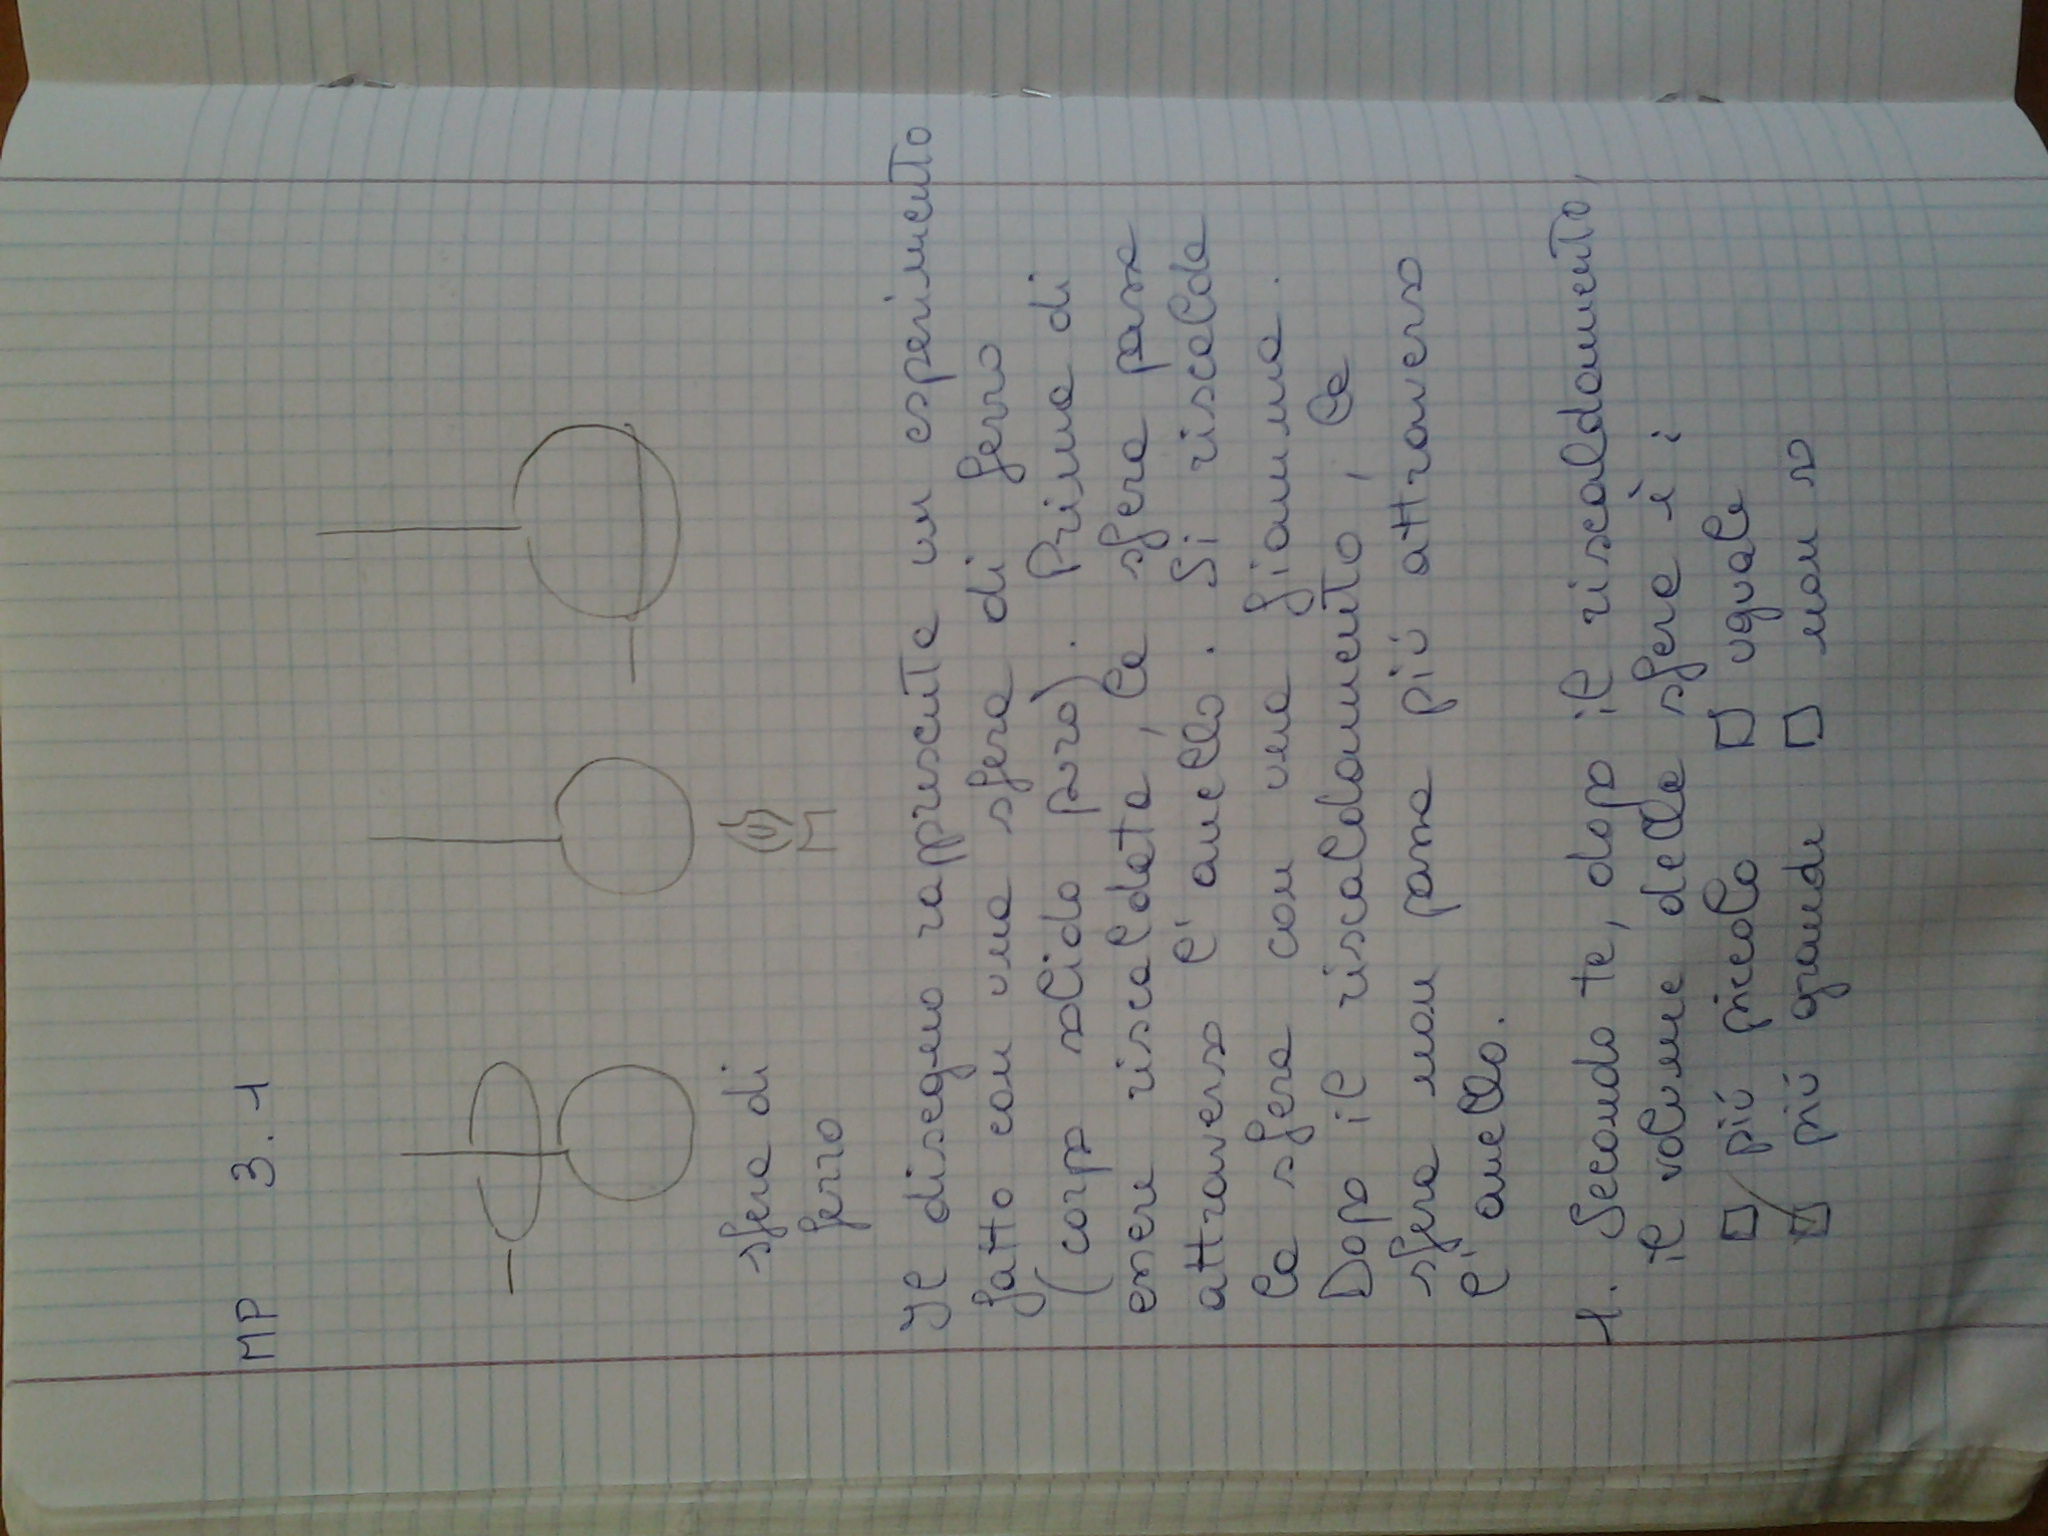 MP 3.1
sfera di
ferro
Il disegno rappresenta un esperimento
fatto con una sfera di ferro
(corpo solido puro). Prima di
essere riscaldata, la sfera passa
attraverso l'anello. Si riscalda
la sfera con una fiamma.
Dopo il riscaldamento, la
sfera non passa più attraverso
l'anello.
1. Secondo te, dopo il riscaldamento,
il volume della sfera è:
più piccolo uguale
più grande non so